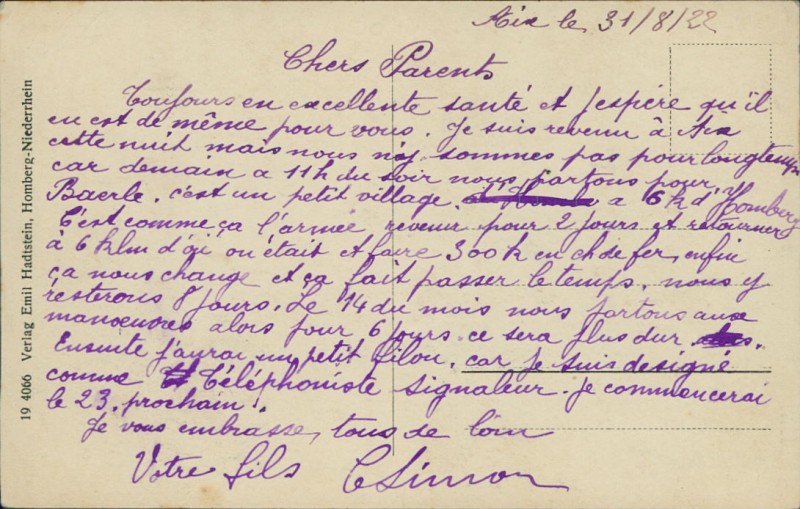 Aix le 31/8/22
Chers Parents
Toujours en excellente santé et j'espère qu'il
en est de même pour vous. Je suis revenu à Aix
cette nuit mais nous n'y sommes pas pour longtemps
car demain a 11h du soir nous partons pour
Baerle. c'est un petit village. a 6k d'Homberg
C'est comme ça l'armée revenir pour 2 jours et retourner
à 6 klm d'où on était et faire 300k en ch de fer, enfin
ça nous change et ça fait passer le temps. nous y
resterons 8 jours. Le 14 du mois nous partons aux
manœuvres alors pour 6 jours ce sera plus dur
Ensuite j'aurai un petit filou. car je suis designé
comme Téléphoniste signaleur. je commencerai
le 23. prochain!.
Je vous embrasse, tous de loin
Votre fils CSimon
19 4066 Verlag Emil Hadtstein, Homberg-Niederrhein